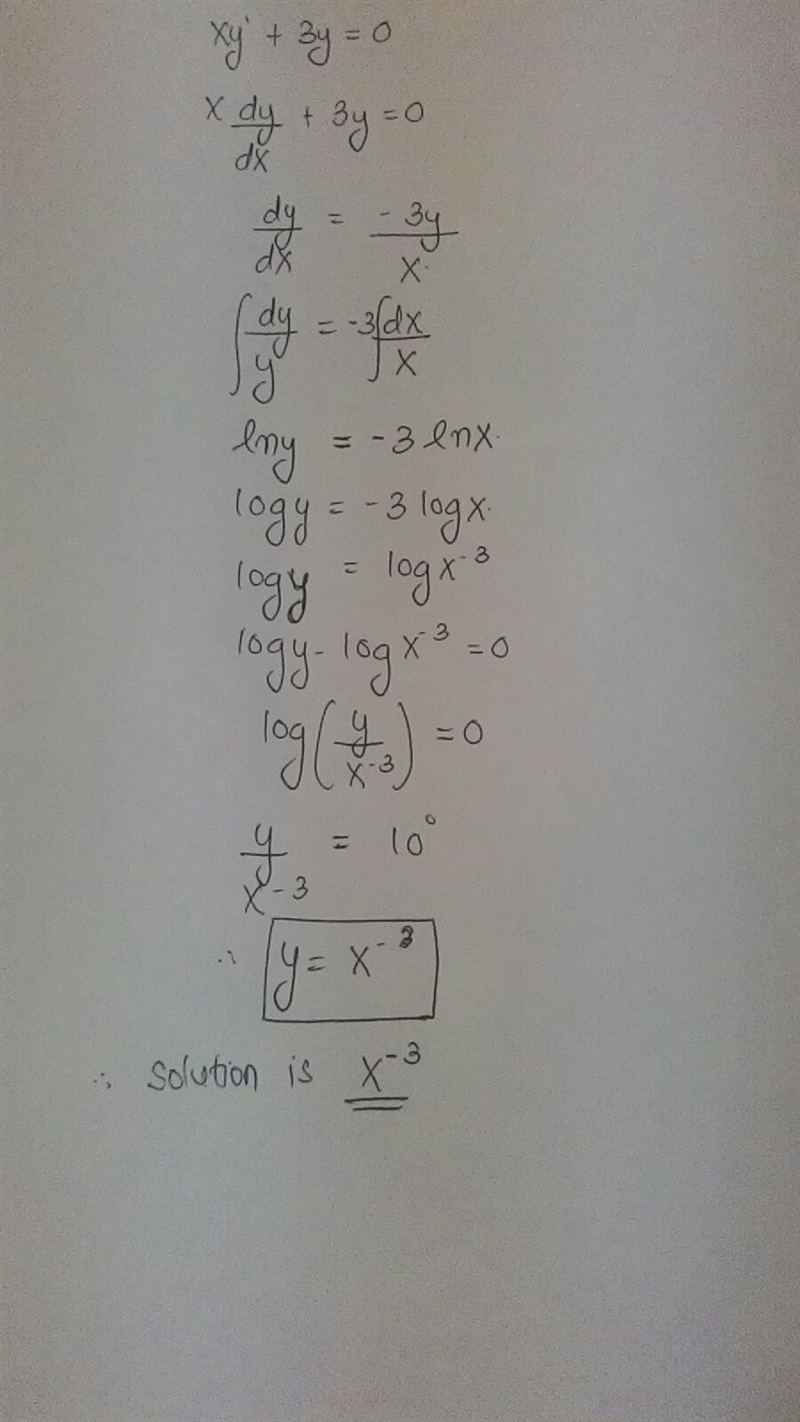 xy' + 3y = 0
x dy/dx + 3y = 0
dy/dx = -3y/x.
∫ dy/y = -3 ∫ dx/x
lny = -3 lnx.
logy = -3 logx.
logy = logx⁻³
logy - logx⁻³ = 0
log(y/x⁻³) = 0
y/x⁻³ = 10⁰
∴ y = x⁻³
∴ solution is x⁻³